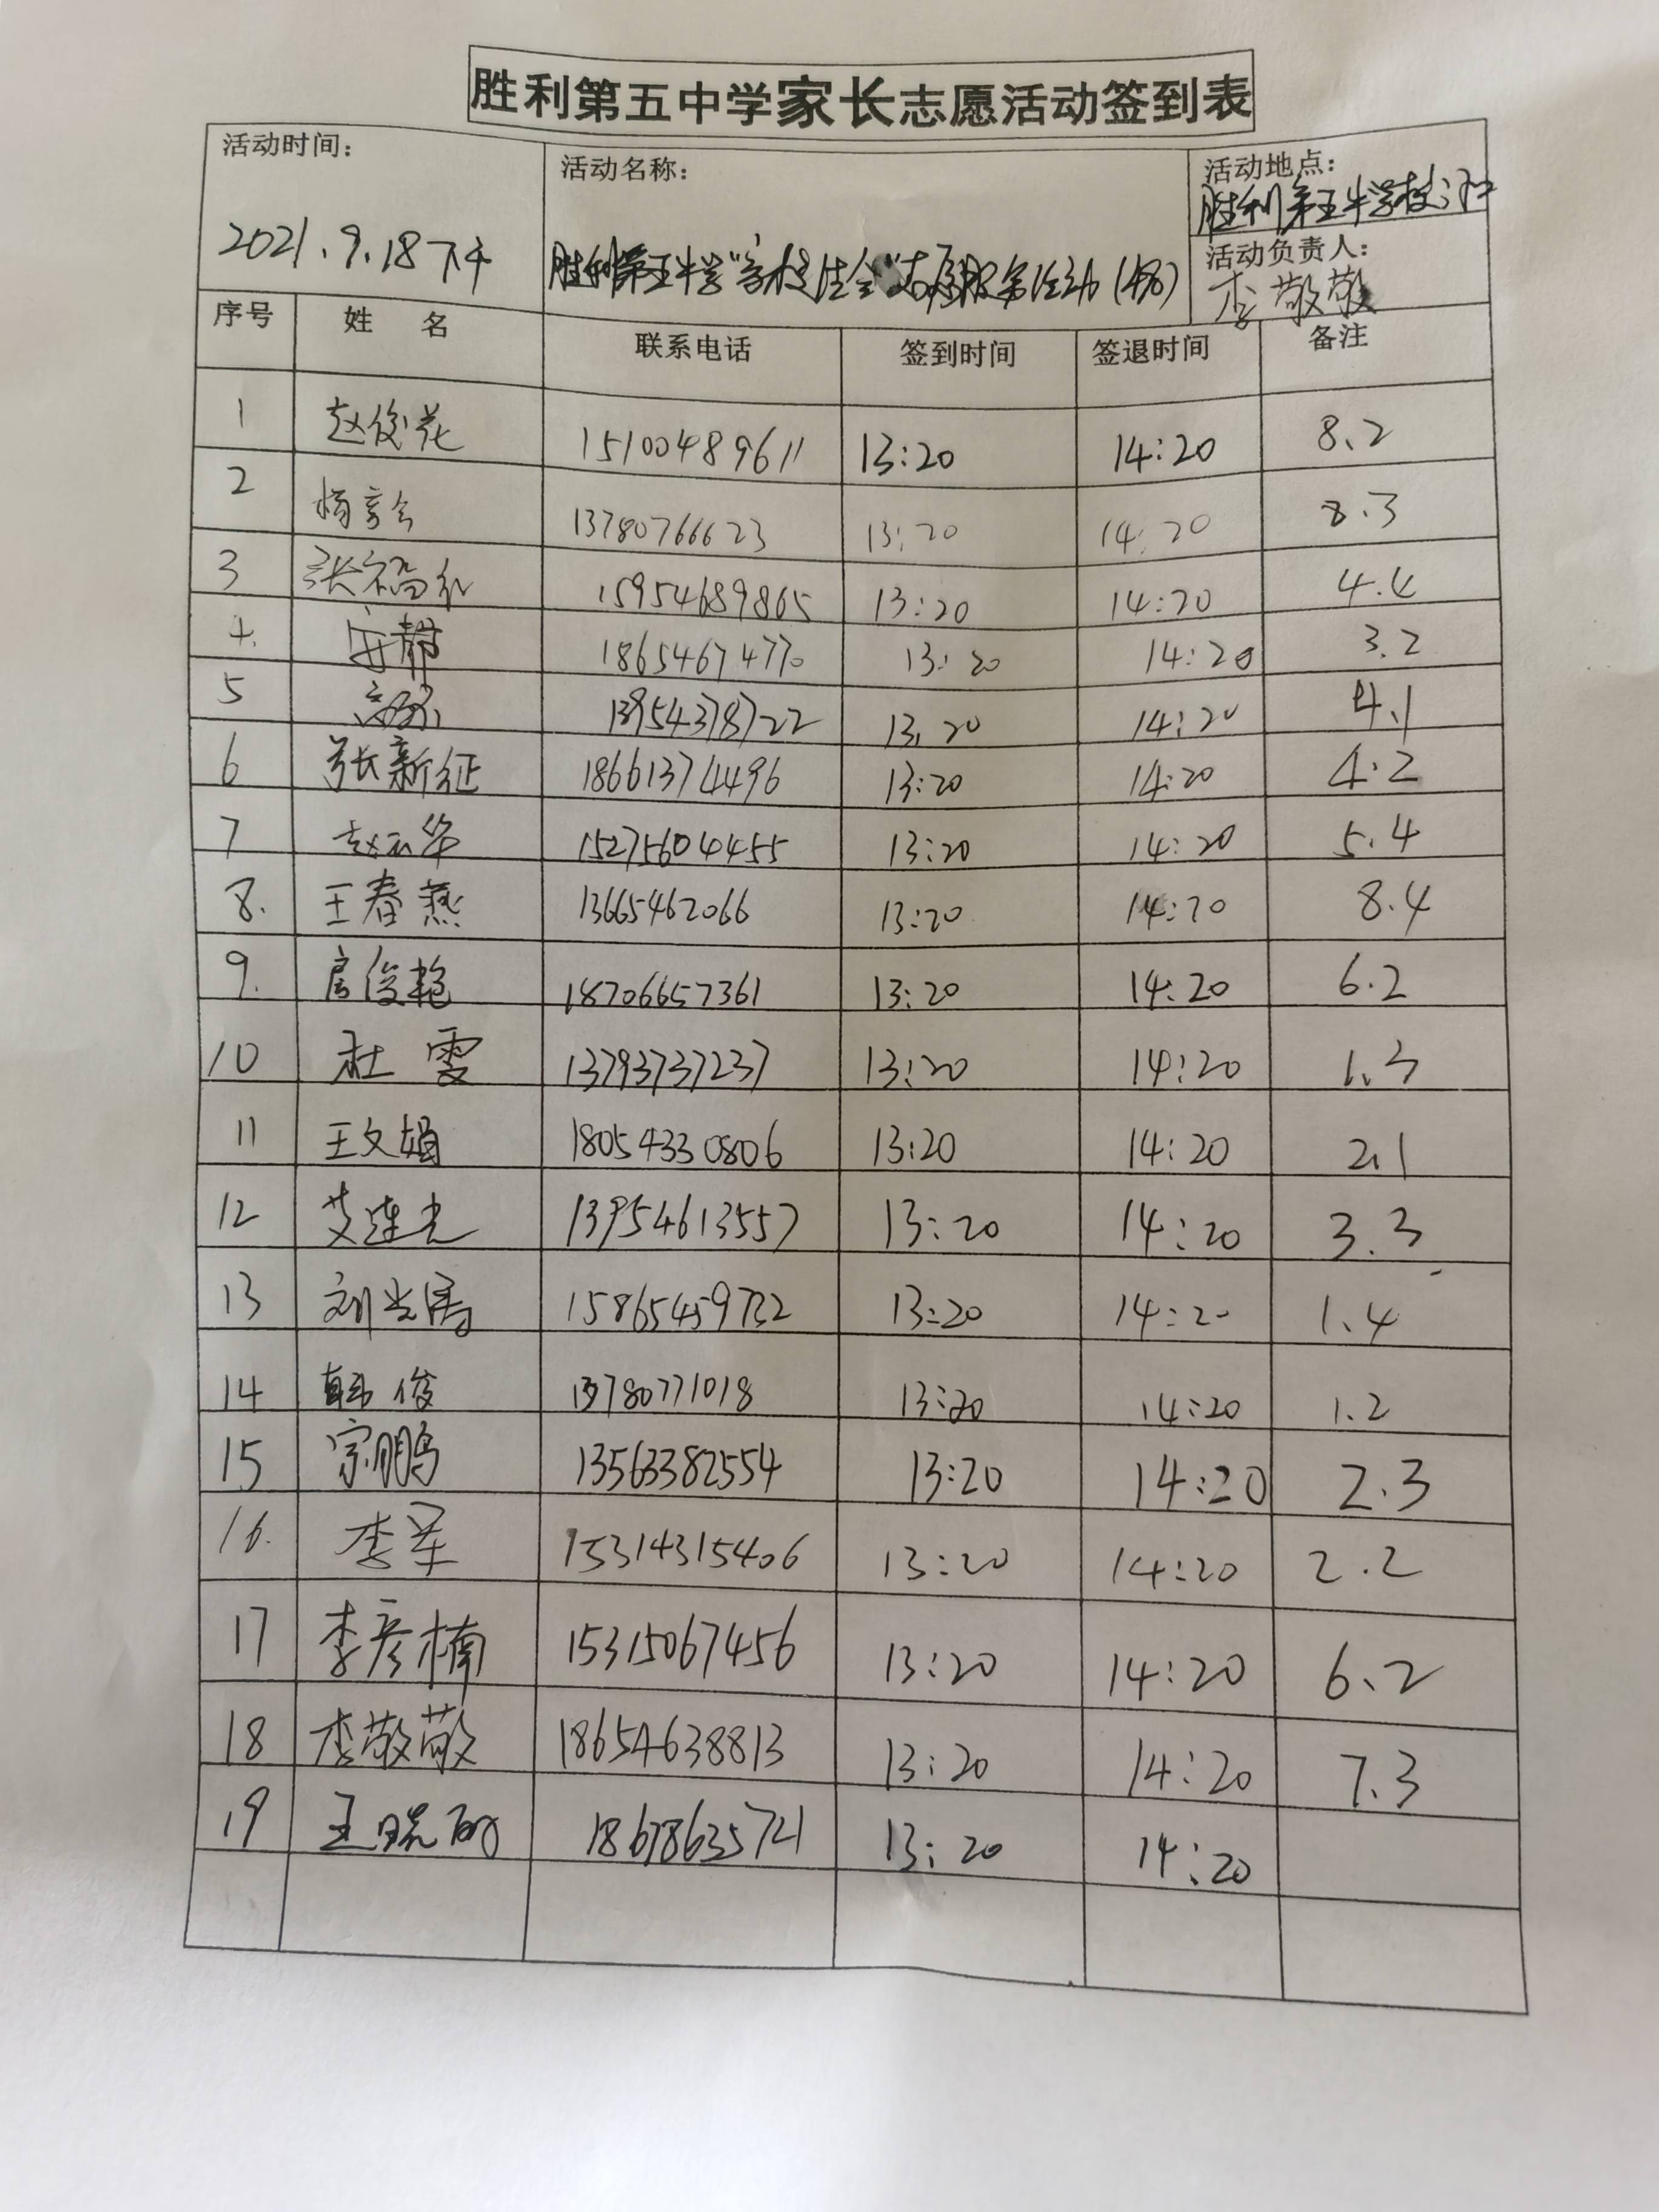 胜利第五中学家长志愿活动签到表
活动时间： 活动名称： 活动地点：
胜利第五中学校门口
2021.9.18下午 胜利第五中学"家校 志愿服务活动 活动负责人：
李敬敬
序号 姓 名 联系电话 签到时间 签退时间 备注
1 赵俊花 15100489611 13:20 14:20 8.2
2 杨 13780766623 13:20 14:20 8.3
3 张福红 15954689865 13:20 14:20 4.4
4. 安静 18654674770 13:20 14:20 3.2
5 13954378722 13:20 14:20 4.1
6 张新征 18661374496 13:20 14:20 4.2
7 赵云华 15275604455 13:20 14:20 5.4
8. 王春燕 13665462066 13:20 14:20 8.4
9. 房俊艳 18706657361 13:20 14:20 6.2
10 杜雯 13793737237 13:20 14:20 1.3
11 王文娟 18054330806 13:20 14:20 2.1
12 艾连光 13954613557 13:20 14:20 3.3
13 刘光 13:20 14:20 1.4
14 韩俊 13780771018 13:20 14:20 1.2
15 宗鹏 13563382554 13:20 14:20 2.3
16. 李军 15314315406 13:20 14:20 2.2
17 李彦楠 15315067456 13:20 14:20 6.2
18 李敬敬 18654638813 13:20 14:20 7.3
19 王晓 18678635721 13:20 14:20